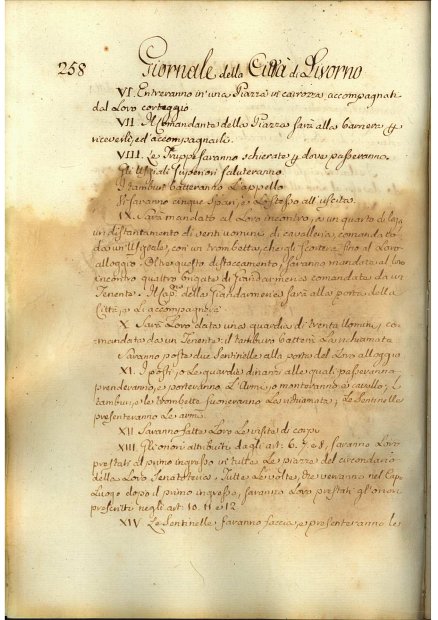 258 Giornale della Città di Livorno
VI. Entreranno in una Piazza in carrozza, accompagnati
dal Loro corteggio
VII. Il Comandante della Piazza sarà alla barriera p
riceverli, ed accompagnarli.
VIII. Le Truppe saranno schierate p dove passeranno.
Gli Ufiziali Superiori saluteranno
I tamburi batteranno L'appello
Vi saranno cinque spari, e Lo stesso all'uscita.
IX. Sarà mandato al Loro incontro, a un quarto di lega
un distaccamento di venti uomini di cavalleria, comandato
da un Ufiziale, con un trombetta, che gli scorterà fino al Loro
alloggio. Oltre questo distaccamento, saranno mandate al loro
incontro quattro brigate di Giandarmeria comandate da un
Tenente. Il Cap. della Giandarmeria sarà alla porta della
Città, e Li accompagnerà
X. Sarà Loro data una guardia di trenta Uomini, co-
mandata da un Tenente: il tamburo batterà La richiamata
Saranno poste due Sentinelle alla porta del Loro alloggio
XI. I posti, o Le guardie dinanzi alle quali passeranno
prenderanno, e porteranno L'Armi, o monteranno a cavallo; I
tamburi, e Le trombette suoneranno La richiamata; Le Sentinelle
presenteranno Le armi.
XII. Saranno fatte Loro Le visite di corpo
XIII. Gli onori attribuiti dagli art. 6, 7, e 8, saranno Loro
prestati al primo ingresso in tutte Le piazze del circondario
della Loro Senatoreria: Tutte Le volte, che verranno nel Capo
Luogo dopo il primo ingresso, saranno Loro prestati gl'onori
prescritti negli art. 10. 11 e 12
XIV. Le Sentinelle faranno faccia, e presenteranno le